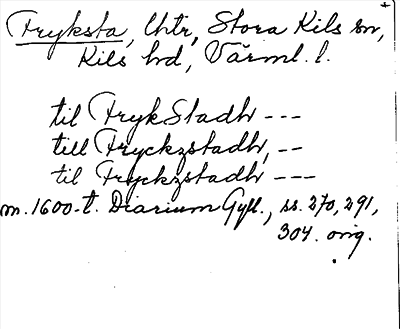 Fryksta, Chtr, Stora Kils sn,
Kils hd, Värml. l.
til FrykStadh ---
till Fryckzstadh, --
til Fryckzstadh ---
m. 1600-t. Diarium Gyll., ss. 270, 291,
304. orig.